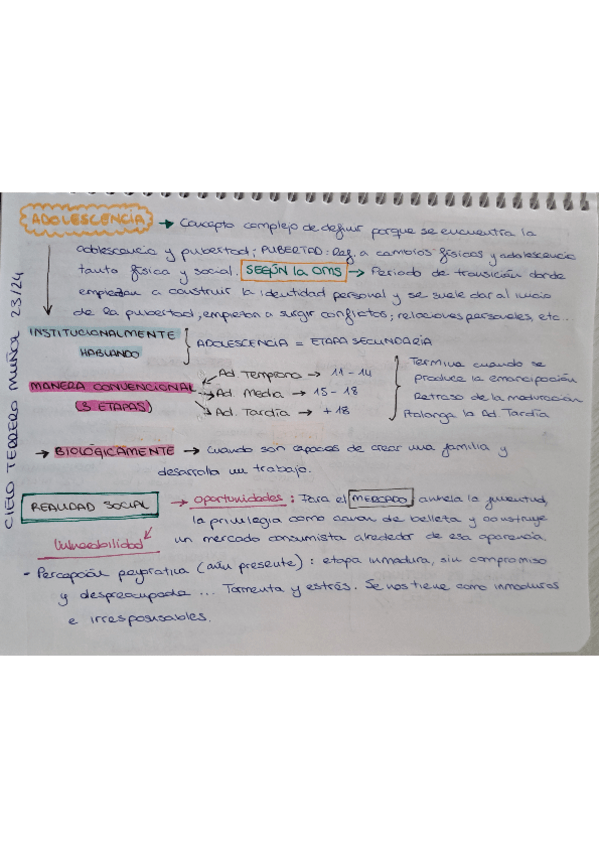 ADOLESCENCIA → Concepto complejo de definir porque se encuentra la
adolescencia y pubertad; PUBERTAD: Ref. a cambios físicos y adolescencia
tanto física y social. SEGÚN la OMS → Periodo de transición donde
empiezan a construir la identidad personal y se suele dar al inicio
de la pubertad, empiezan a surgir conflictos; relaciones personales, etc..
INSTITUCIONALMENTE HABLANDO
ADOLESCENCIA = ETAPA SECUNDARIA
MANERA CONVENCIONAL
(3 ETAPAS)
Ad Temprana → 11 - 14
Ad. Media → 15 - 18
Ad. Tardía → + 18
Termina cuando se
produce la emancipación
Retraso de la maduración
Alalonga la Ad. Tardía
→ BIOLÓGICAMENTE → Cuando son capaces de crear una familia y
desarrolla un trabajo.
REALIDAD SOCIAL
→ Oportunidades: Para el MERCADO anhela la juventud,
la privilegia como canon de belleza y construye
un mercado consumista alrededor de esa apariencia
Vulnerabilidad
- Percepción peyorativa (aún presente): etapa inmadura, sin compromiso
y despreocupada ... Tormenta y estrés. Se nos tiene como inmaduros
e irresponsables.
CIELO TERRERO MUÑOZ 23/24